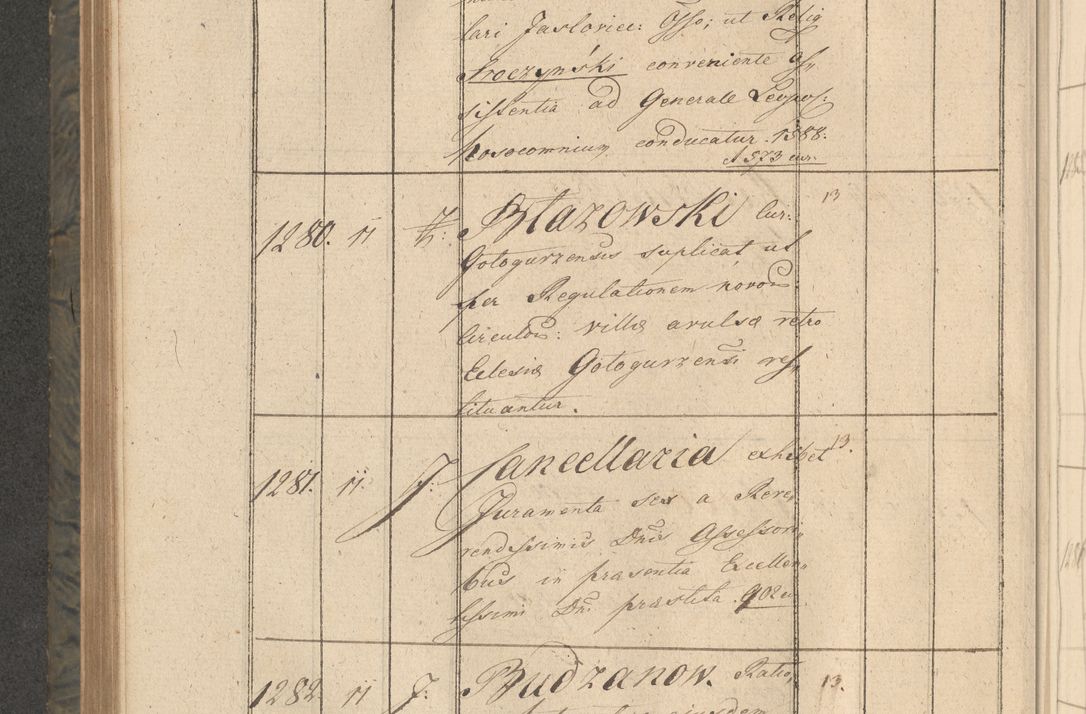 lari Jaslovice: Offo; ut Relig
Kroczyński conveniente As„
sistentia ad Generale Leopol:
Nosocomnium conducatur. 1388.
d 573 cur.
1280. 11 Błazowski cur: 13
Gołogurzensis suplicat ut
per Regulationem novor.
Circulor: villæ avulsæ retro
Eclesiæ Gołogurzensi res„
tituantur.
1281. 11. J: Cancellaria exhibet 13.
Juramenta sex a Reve„
rendissimis Dnis Assessori„
bus in præsentia Excellen„
tissimi Dni præstita. 902
1282 11 J: Budzanow. Ratio„ 13.
ejusdem